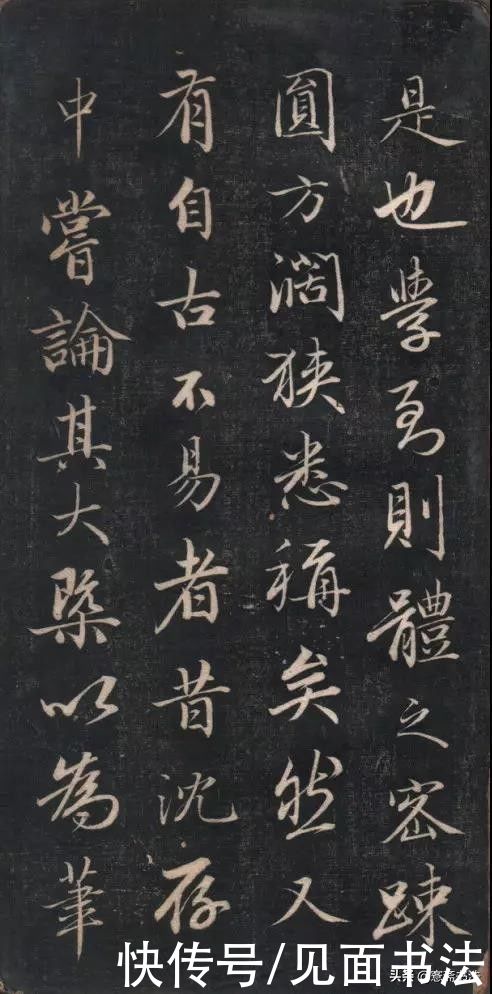 是也學至則體之密疎
圓方闊狹悉稱矣然又
有自古不易者昔沈存
中嘗論其大槩以為筆
快传号/见面书法
头条@